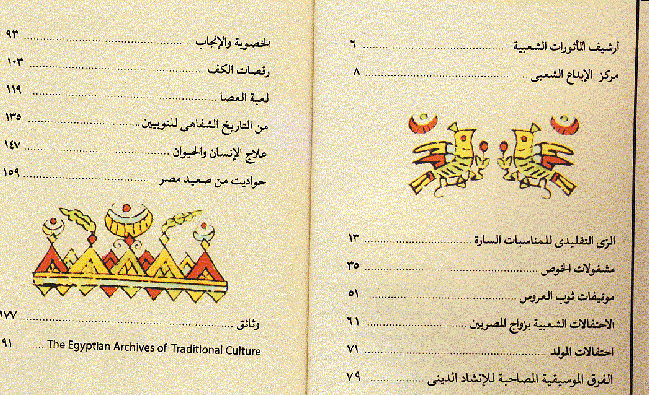 أرشيف المأثورات الشعبية ........ ٦
مركز الإبداع الشعبى ........ ٨
الزى التقليدى للمناسبات السارة ........ ١٣
مشغولات الخوص ........ ٣٥
موتيفات ثوب العروس ........ ٥١
الاحتفالات الشعبية بزواج المصريين ........ ٦١
احتفالات المولد ........ ٧١
الفرق الموسيقية المصاحبة للإنشاد الدينى ........ ٧٩
الخصوبة والإنجاب ........ ٩٣
رقصات الكف ........ ١٠٣
لعبة العصا ........ ١١٩
من التاريخ الشفاهى للنوبيين ........ ١٣٥
علاج الإنسان والحيوان ........ ١٤٧
حواديت من صعيد مصر ........ ١٥٩
وثائق ........ ١٧٧
The Egyptian Archives of Traditional Culture ........ ٩١